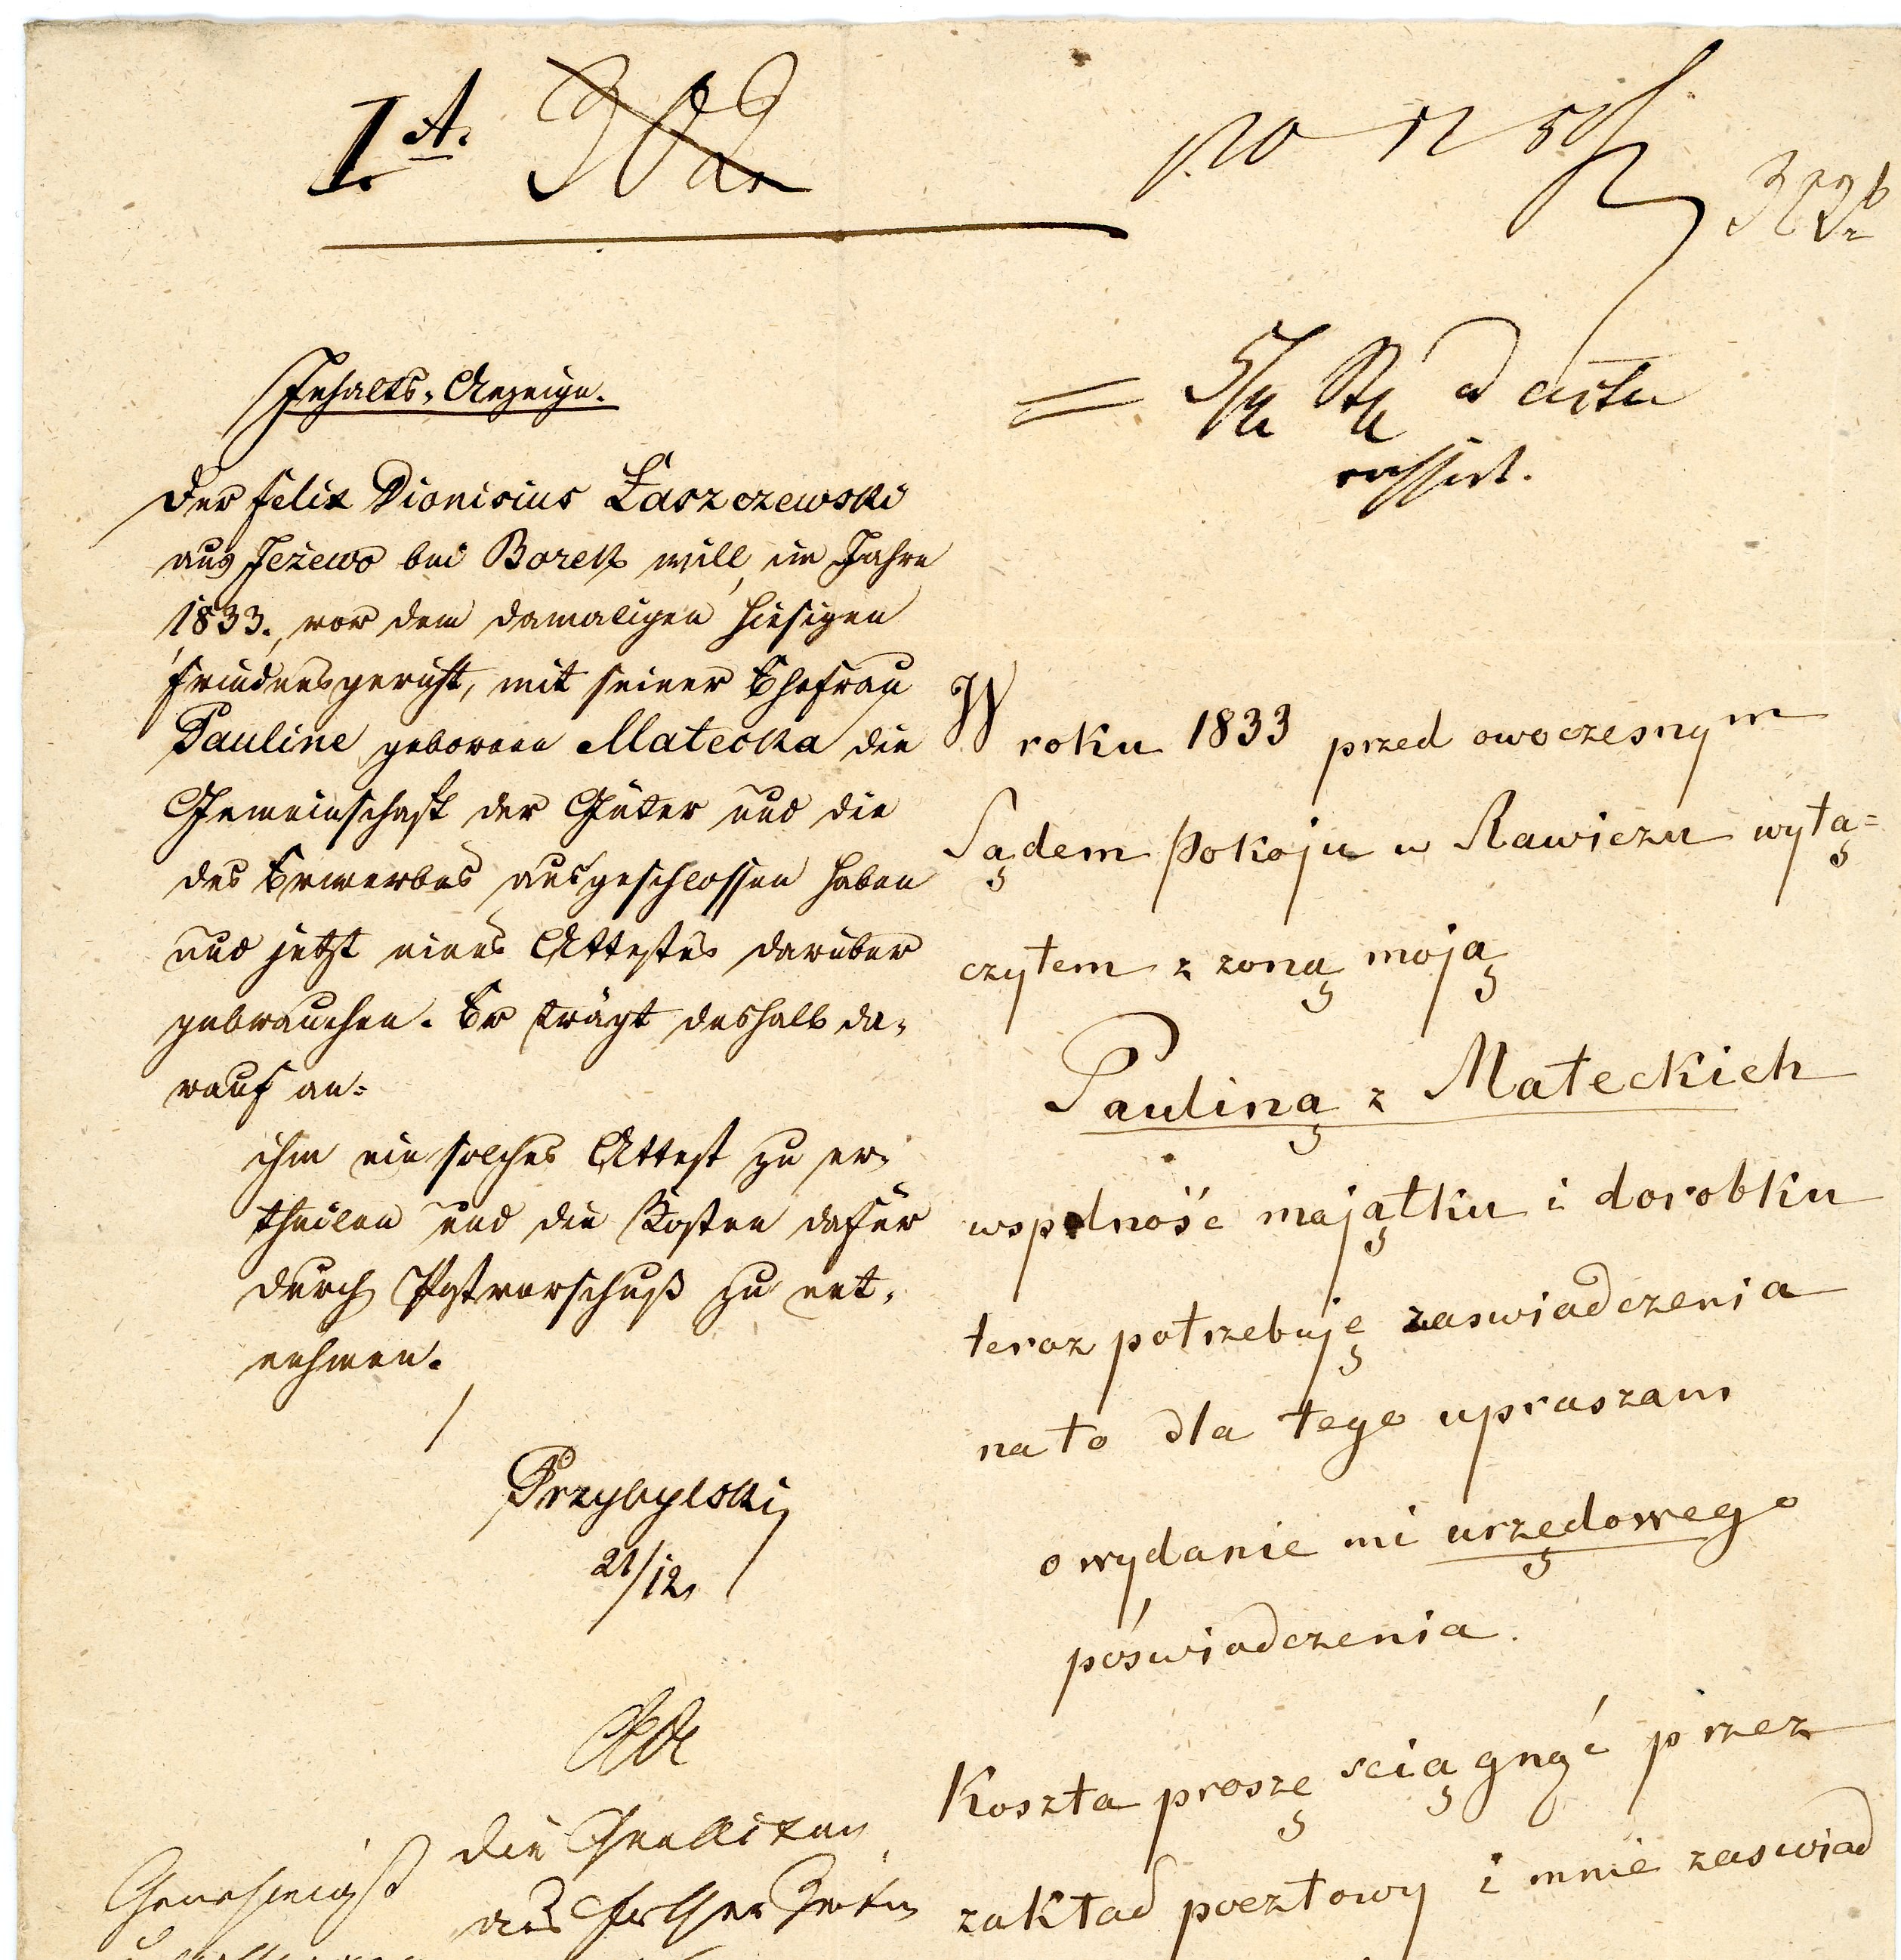 I A.
Inhalts-Anzeige.
Der Felix Dionisius Łaszczewski
aus Jeżewo bei Borek will, im Jahre
1833., vor dem damaligen hiesigen
Friedensgericht, mit seiner Ehefrau
Pauline geborene Matecka die
Gemeinschaft der Güter und die
des Erwerbes ausgeschlossen haben
und jetzt eines Attestes darüber
gebrauchen. Er trägt deshalb da-
rauf an:
ihm ein solches Attest zu er-
theilen und die Kosten dafür
durch Postvorschuß zu ent-
nehmen.
Przybylski
21/12
ad acta
W roku 1833 przed owoczesnym
Sądem Pokoju w Rawiczu wyłą=
czyłem z zoną moją
Pauliną z Mateckich
wspolność majątku i dorobku
teraz potrzebuję zaswiadczenia
na to dla tego upraszam
o wydanie mi urzędowego
poświadczenia.
Koszta proszę sciągnąć przez
zakład pocztowy i mnie zaswiad
die
aus